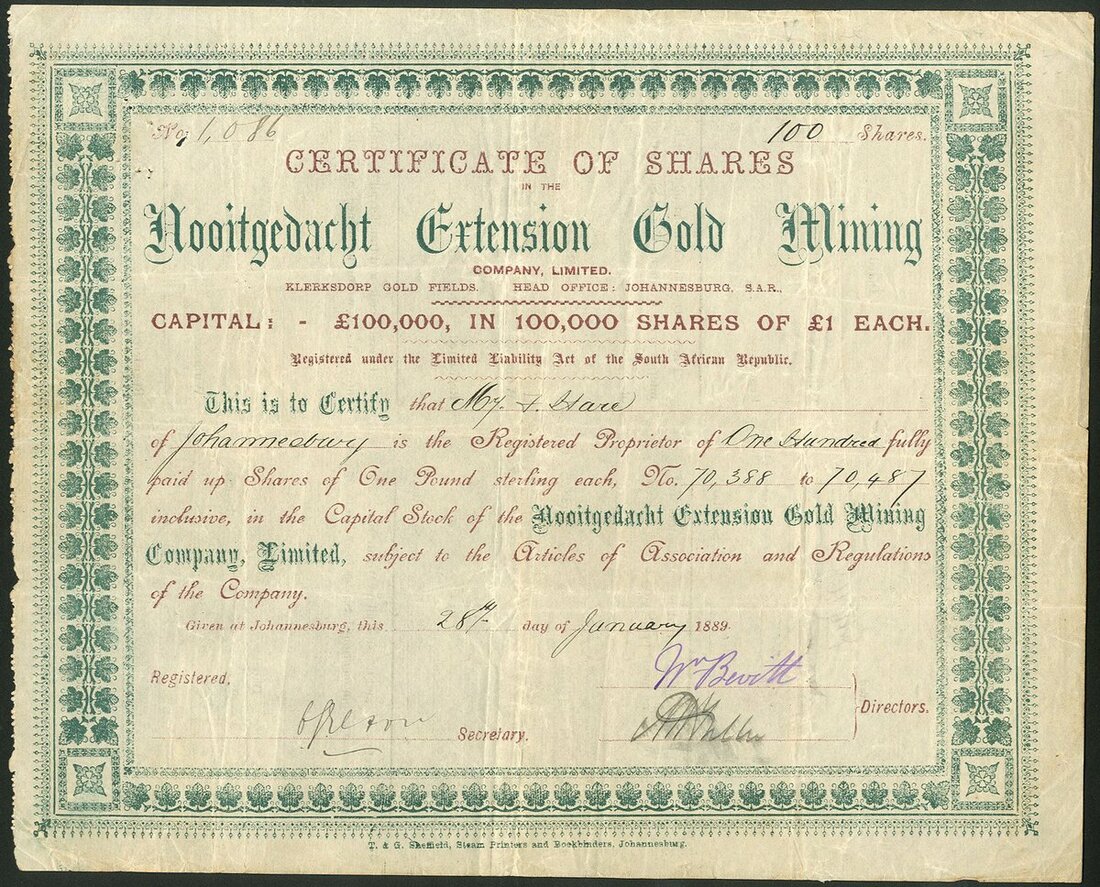 No. 1,086 100 Shares.
CERTIFICATE OF SHARES
IN THE
Nooitgedacht Extension Gold Mining
COMPANY, LIMITED.
KLERKSDORP GOLD FIELDS. HEAD OFFICE: JOHANNESBURG, S.A.R.,
CAPITAL: - £100,000, IN 100,000 SHARES OF £1 EACH.
Registered under the Limited Liability Act of the South African Republic.
This is to Certify that
of Johannesburg is the Registered Proprietor of One Hundred fully
paid up Shares of One Pound sterling each, No. 70,388 to 70,487
inclusive, in the Capital Stock of the Nooitgedacht Extension Gold Mining
Company, Limited, subject to the Articles of Association and Regulations
of the Company.
Given at Johannesburg, this 28th day of January 1889.
Wm Bevitt
Registered,
Directors.
Secretary.
T. & G. Sheffield, Steam Printers and Bookbinders, Johannesburg.